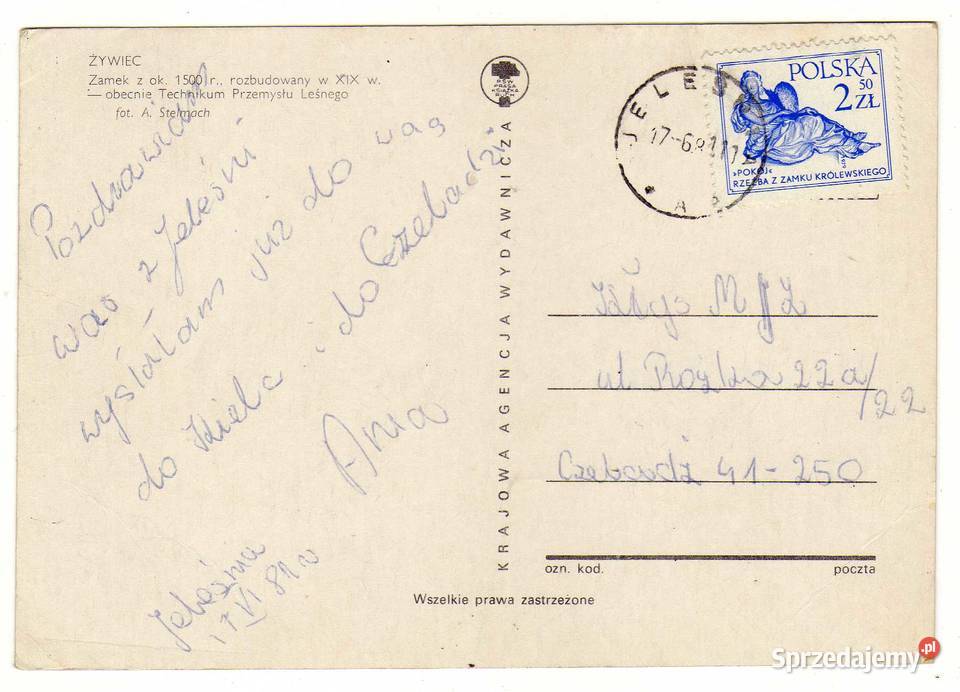 ŻYWIEC
Zamek z ok. 1500 r., rozbudowany w XIX w.
— obecnie Technikum Przemysłu Leśnego
fot. A. Stelmach
Pozdrawiam
was z Jeleśni
wysłałam już do was
do Kielc i do Czeladzi
Ania
Jeleśnia
17 VI 81 r
KRAJOWA AGENCJA WYDAWNICZA
RSW
PRASA
KSIĄŻKA
RUCH
JELEŚ
17-6.81
POLSKA
50
2 ZŁ
»POKÓJ«
RZEŹBA Z ZAMKU KRÓLEWSKIEGO
M J Z
ul 22a/22
Czeladź 41-250
ozn. kod. poczta
Wszelkie prawa zastrzeżone
Sprzedajemy.pl